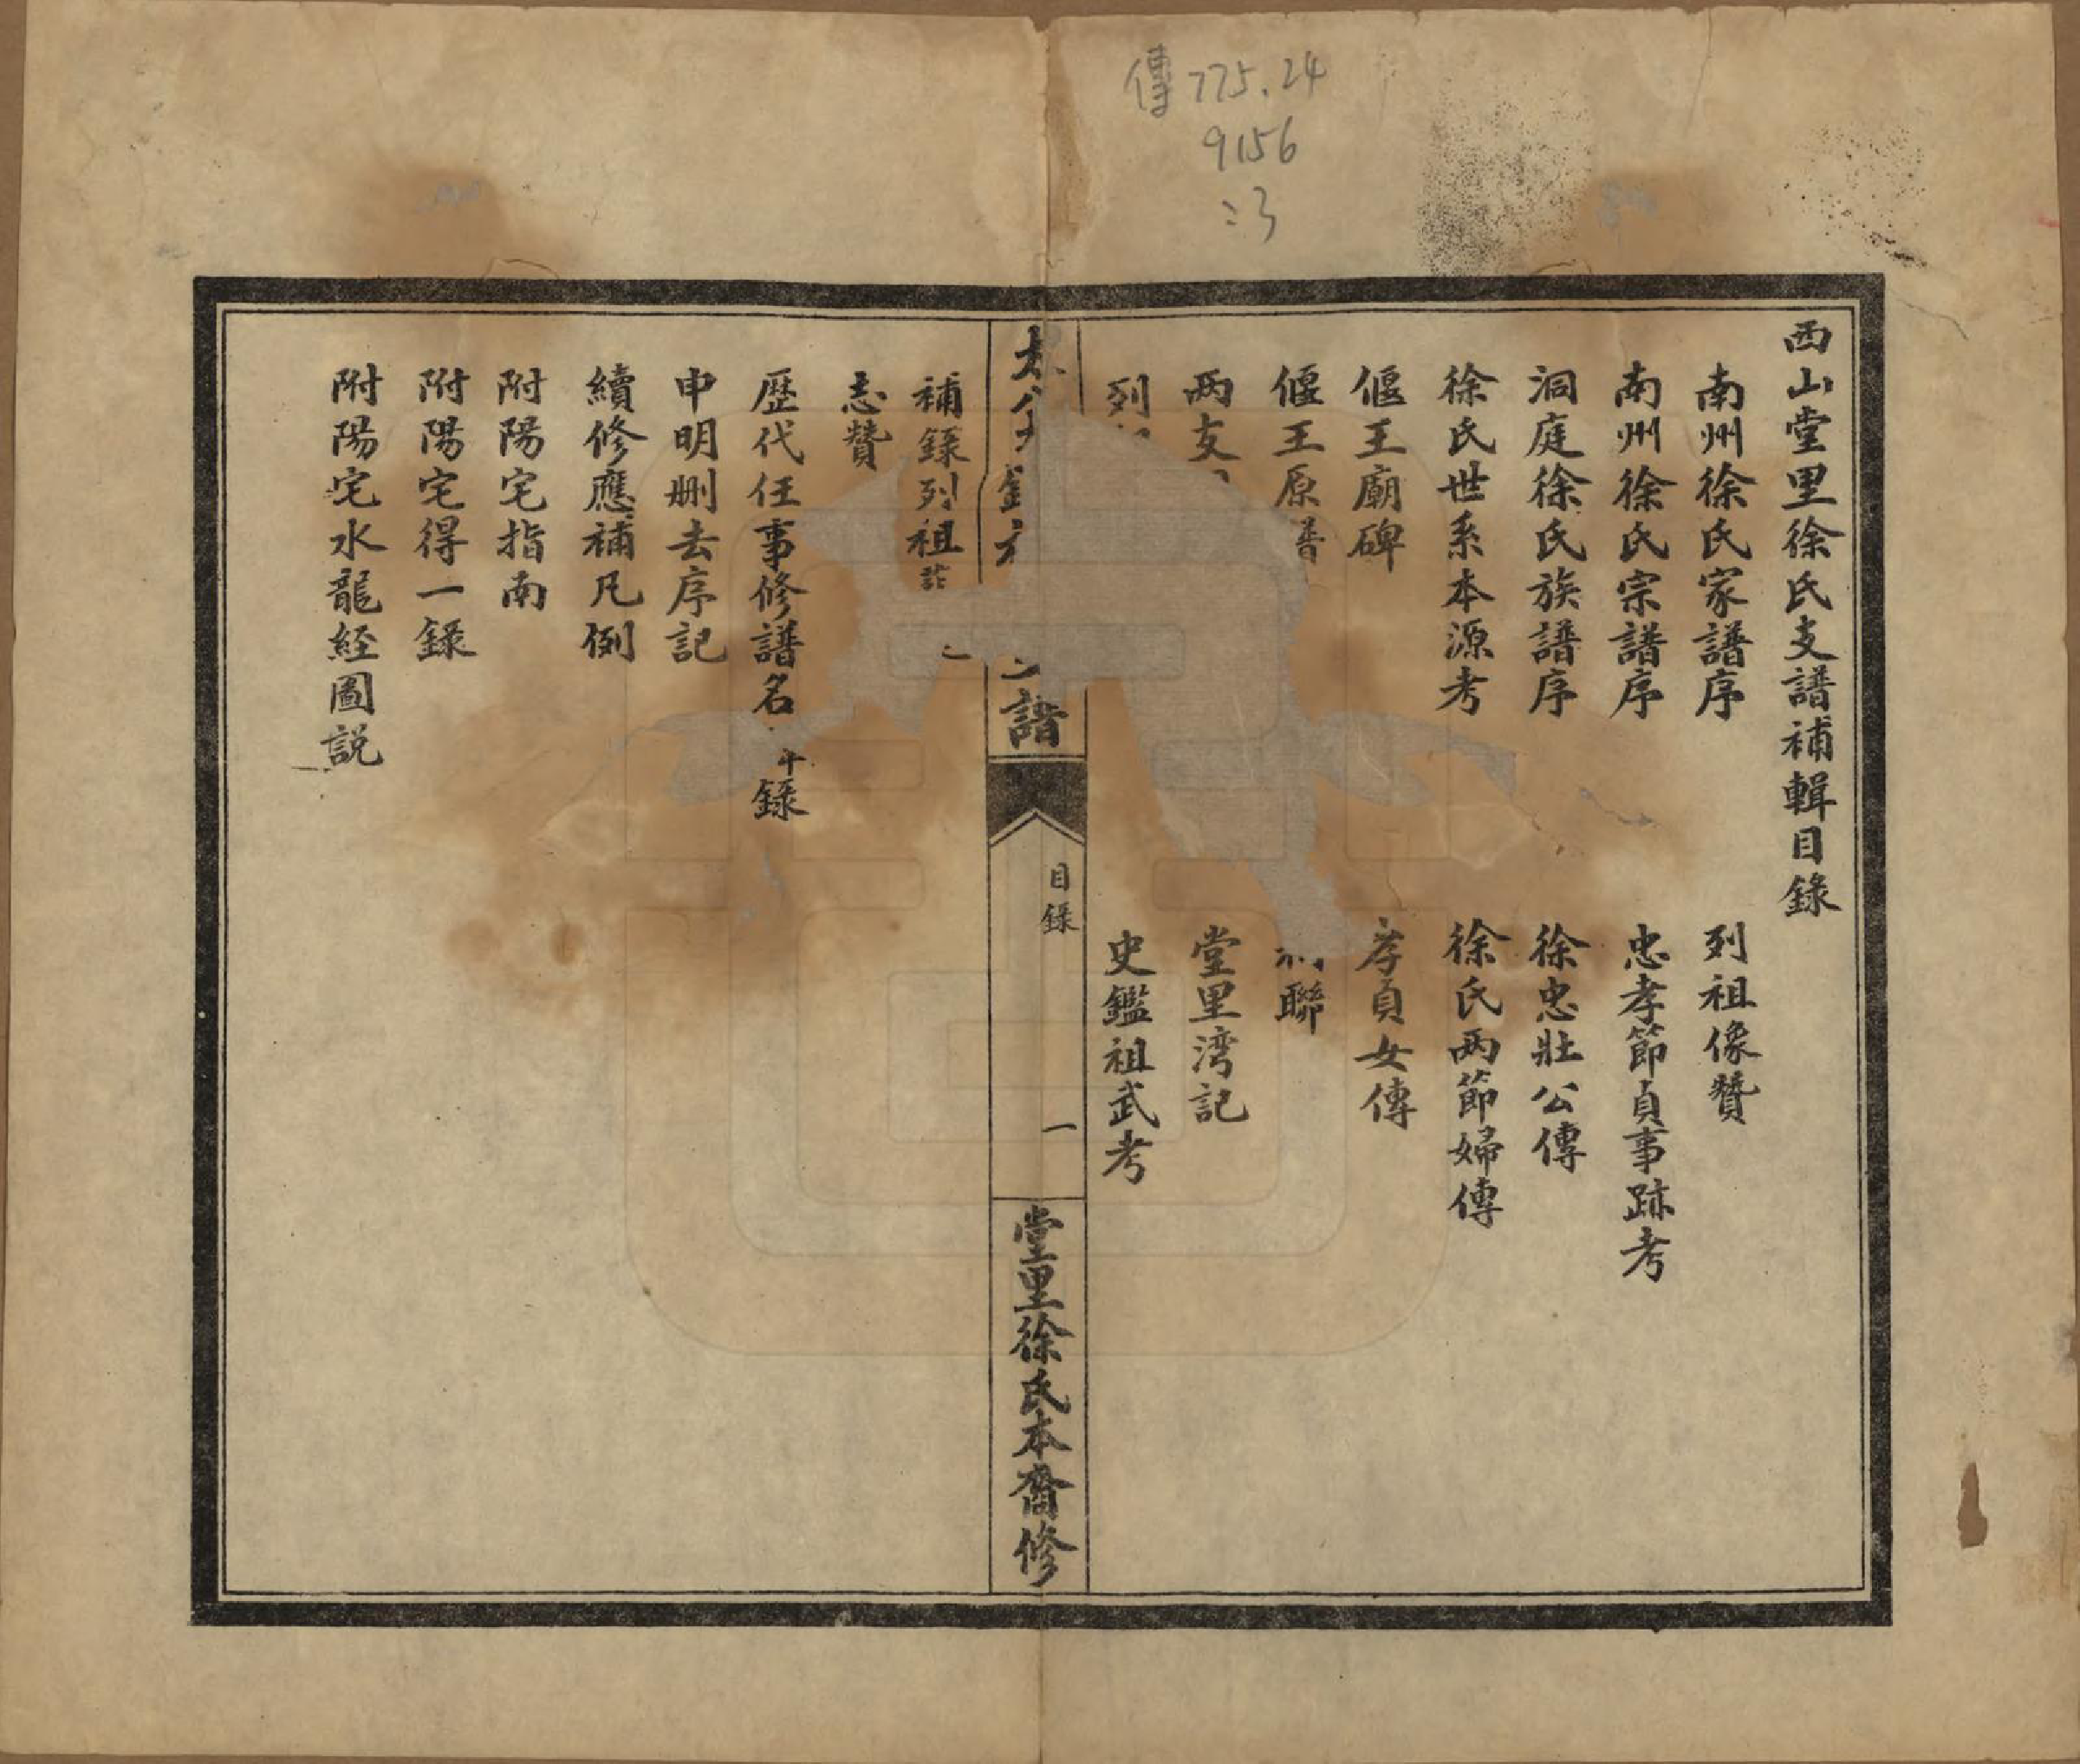 傳 775.24
9156
:3
西山堂里徐氏支譜補輯目錄
南州徐氏家譜序
列祖像贊
南州徐氏宗譜序
忠孝節貞事跡考
洞庭徐氏族譜序
徐忠壯公傳
徐氏世系本源考
徐氏两節婦傳
偃王廟碑
孝貞女傳
偃王原譜
聯
两支
堂里湾記
列
史鑑祖武考
譜
目錄
一
堂里徐氏本裔修
補錄列祖
志贊
歷代任事修譜名 錄
申明刪去序記
續修應補凡例
附陽宅指南
附陽宅得一錄
附陽宅水龍經圖説